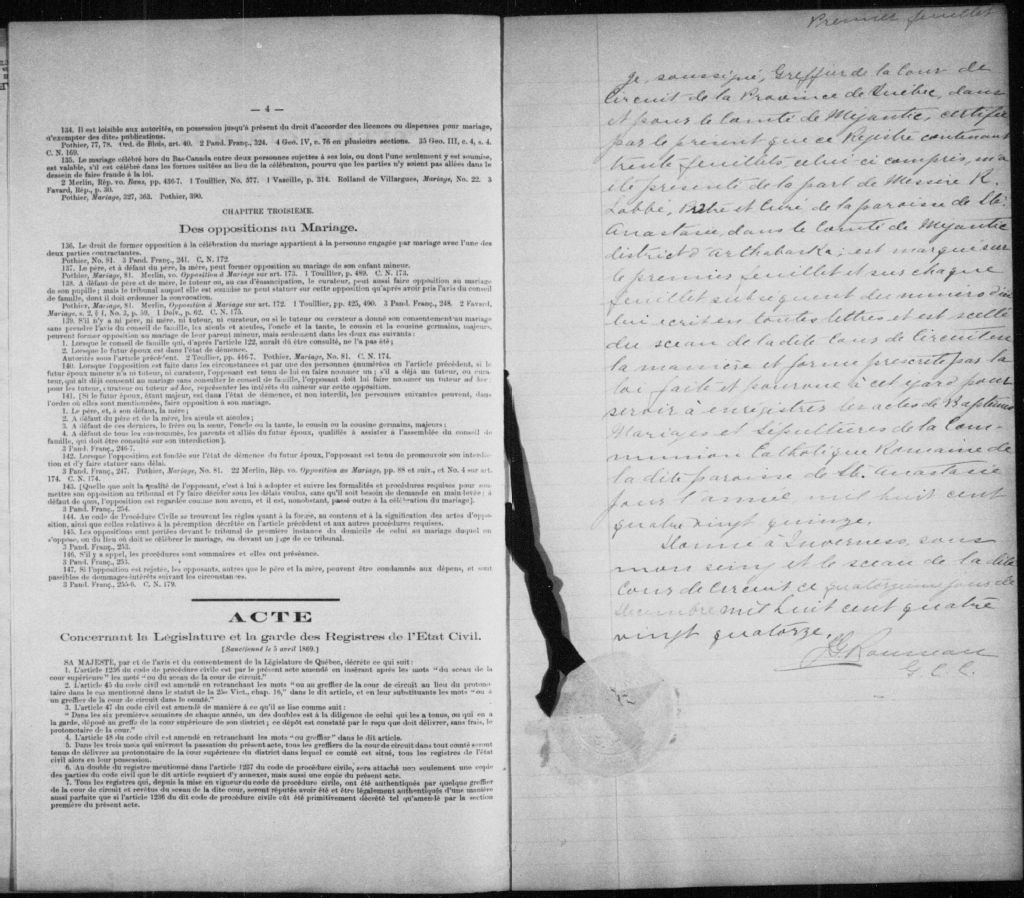 — 4 —
134. Il est loisible aux autorités, en possession jusqu'à présent du droit d'accorder des licences ou dispenses pour mariage,
d'exempter des dites publications.
Pothier, 77, 78. Ord. de Blois, art. 40. 2 Pand. Franç., 324. 4 Geo. IV, c. 76 en plusieurs sections. 35 Geo. III, c. 4, s. 4.
C. N. 169.
135. Le mariage célébré hors du Bas-Canada entre deux personnes sujettes à ses lois, ou dont l'une seulement y est soumise,
est valable, s'il est célébré dans les formes usitées au lieu de la célébration, pourvu que les parties n'y soient pas allées dans le
dessein de faire fraude à la loi.
2 Merlin, Rép. vo. Bans, pp. 436-7. 1 Touillier, No. 577. 1 Vazeille, p. 314. Rolland de Villargues, Mariage, No. 22. 3
Favard, Rép., p. 30.
Pothier, Mariage, 327, 363. Pothier, 390.
CHAPITRE TROISIEME.
Des oppositions au Mariage.
136. Le droit de former opposition à la célébration du mariage appartient à la personne engagée par mariage avec l'une des
deux parties contractantes.
Pothier, No. 81. 3 Pand. Franç., 241. C. N. 172.
137. Le père, et à défaut du père, la mère, peut former opposition au mariage de son enfant mineur.
Pothier, Mariage, 81. Merlin, vo. Opposition à Mariage sur art. 173. 1 Touillier, p. 489. C. N. 173.
138. A défaut de père et de mère, le tuteur ou, au cas d'émancipation, le curateur, peut aussi faire opposition au mariage
de son pupille; mais le tribunal auquel elle est soumise ne peut statuer sur cette opposition qu'après avoir pris l'avis du conseil
de famille, dont il doit ordonner la convocation.
Pothier, Mariage, 81. Merlin, Opposition à Mariage sur art. 172. 1 Touillier, pp. 425, 490. 3 Pand. Franç., 248. 2 Favard,
Mariage, s. 2, § 1, No. 3, p. 59. 1 Dolv., p. 62. C. N. 175.
139. S'il n'y a ni père, ni mère, ni tuteur, ni curateur, ou si le tuteur ou curateur a donné son consentement au mariage
sans prendre l'avis du conseil de famille, les aïeuls et aïeules, l'oncle et la tante, le cousin et la cousine germains, majeurs,
peuvent former opposition au mariage de leur parent mineur, mais seulement dans les deux cas suivants :
1. Lorsque le conseil de famille qui, d'après l'article 122, aurait dû être consulté, ne l'a pas été;
2. Lorsque le futur époux est dans l'état de démence.
Autorités sous l'article précédent. 2 Touillier, pp. 446-7. Pothier, Mariage, No. 81. C. N. 174.
140. Lorsque l'opposition est faite dans les circonstances et par une des personnes énumérées en l'article précédent, si le
futur époux mineur n'a ni tuteur, ni curateur, l'opposant est tenu de lui en faire nommer un; s'il a déjà un tuteur, ou cura-
teur, qui ait déjà consenti au mariage sans consulter le conseil de famille, l'opposant doit lui faire nommer un tuteur ad hoc,
pour les tuteur, curateur ou tuteur ad hoc, représenter les intérêts du mineur sur cette opposition.
141. [Si le futur époux, étant majeur, est dans l'état de démence, et non interdit, les personnes suivantes peuvent, dans
l'ordre où elles sont mentionnées, faire opposition à son mariage.
1. Le père, et, à son défaut, la mère ;
2. A défaut du père et de la mère, les aïeuls et aïeules ;
3. A défaut de ces derniers, le frère ou la sœur, l'oncle ou la tante, le cousin ou la cousine germains, majeurs ;
4. A défaut de tous les sus-nommés, les parents et alliés du futur époux, qualifiés à assister à l'assemblée du conseil de
famille, qui doit être consulté sur son interdiction].
3 Pand. Franç., 246-7.
142. Lorsque l'opposition est fondée sur l'état de démence du futur époux, l'opposant est tenu de promouvoir son interdic-
tion et d'y faire statuer sans délai.
3 Pand. Franç., 247. Pothier, Mariage, No. 81. 22 Merlin, Rép. vo. Opposition au Mariage, pp. 88 et suiv., et No. 4 sur art.
174. C. N. 174.
143. [Quelle que soit la qualité de l'opposant, c'est à lui à adopter et suivre les formalités et procédures requises pour sou-
mettre son opposition au tribunal et l'y faire décider sous les délais voulus, sans qu'il soit besoin de demande en main-levée; à
défaut de quoi, l'opposition est regardée comme non avenue, et il est, nonobstant, passé outre à la célébration du mariage].
3 Pand. Franç., 254.
144. Au code de Procédure Civile se trouvent les règles quant à la forme, au contenu et à la signification des actes d'oppo-
sition, ainsi que celles relatives à la péremption décrétée en l'article précédent et aux autres procédures requises.
145. Les oppositions sont portées devant le tribunal de première instance du domicile de celui au mariage duquel on
s'oppose, ou du lieu où doit se célébrer le mariage, ou devant un juge de ce tribunal.
3 Pand. Franç., 253.
146. S'il y a appel, les procédures sont sommaires et elles ont préséance.
3 Pand. Franç., 255.
147. Si l'opposition est rejetée, les opposants, autres que le père et la mère, peuvent être condamnés aux dépens, et sont
passibles de dommages-intérêts suivant les circonstances.
3 Pand. Franç., 255-6. C. N. 179.
ACTE
Concernant la Législature et la garde des Registres de l'Etat Civil.
[Sanctionné le 5 avril 1869.]
SA MAJESTE, par et de l'avis et du consentement de la Législature de Québec, décrète ce qui suit :
1. L'article 1236 du code de procédure civile est par le présent acte amendé en insérant après les mots "du sceau de la
cour supérieure" les mots "ou du sceau de la cour de circuit."
2. L'article 45 du code civil est amendé en retranchant les mots "ou au greffier de la cour de circuit au lieu du protono-
taire dans le cas mentionné dans le statut de la 25e Vict., chap. 16," dans le dit article, et en leur substituants les mots "ou à
un greffier de la cour de circuit dans le comté."
3. L'article 47 du code civil est amendé de manière à ce qu'il se lise comme suit :
"Dans les six premières semaines de chaque année, un des doubles est à la diligence de celui qui les a tenus, ou qui en a
la garde, déposé au greffe de la cour supérieure de son district; ce dépôt est constaté par le reçu que doit délivrer, sans frais, le
protonotaire de la cour."
4. L'article 48 du code civil est amendé en retranchant les mots "ou greffier" dans le dit article.
5. Dans les trois mois qui suivront la passation du présent acte, tous les greffiers de la cour de circuit dans tout comté seront
tenus de délivrer au protonotaire de la cour supérieure du district dans lequel ce comté est situé, tous les registres de l'état
civil alors en leur possession.
6. Au double du registre mentionné dans l'article 1237 du code de procédure civile, sera attaché non seulement une copie
des parties du code civil que le dit article requiert d'y annexer, mais aussi une copie du présent acte.
7. Tous les registres qui, depuis la mise en vigueur du code de procédure civile, ont été authentiqués par quelque greffier
de la cour de circuit et revêtus du sceau de la dite cour, seront réputés avoir été et être légalement authentiqués d'une manière
aussi parfaite que si l'article 1236 du dit code de procédure civile eût été primitivement décrété tel qu'amendé par la section
première du présent acte.
Premier feuillet
Je, soussigné, Greffier de la Cour de
Circuit de la Province de Québec, dans
et pour le Comté de Mégantic, certifie
par le présent que ce Registre contenant
trente feuillets celui ci compris, m'a
été présenté de la part de Messire R.
Labbé, Ptre et Curé de la paroisse de Ste.
Anastasie, dans le Comté de Mégantic
district d'Arthabaska; est marqué sur
le premier feuillet et sur chaque
feuillet subséquent du numéro d'ice
lui écrit en toutes lettres et est scellé
du sceau de la dite Cour de Circuit en
la manière et forme prescrite par la
loi faite et pourvue à cet égard pour
servir à enregistrer les actes de Baptêmes
Mariages et Sépultures de la Com-
munion Catholique Romaine de
la dite paroisse de Ste. Anastasie
pour l'année mil huit cent
quatre vingt quinze.
Donné à Inverness, sous
mon seing et le sceau de la dite
Cour de Circuit ce quatorzième jour de
Décembre mil huit cent quatre
vingt quatorze.
JG Rousseau
G. C. C.